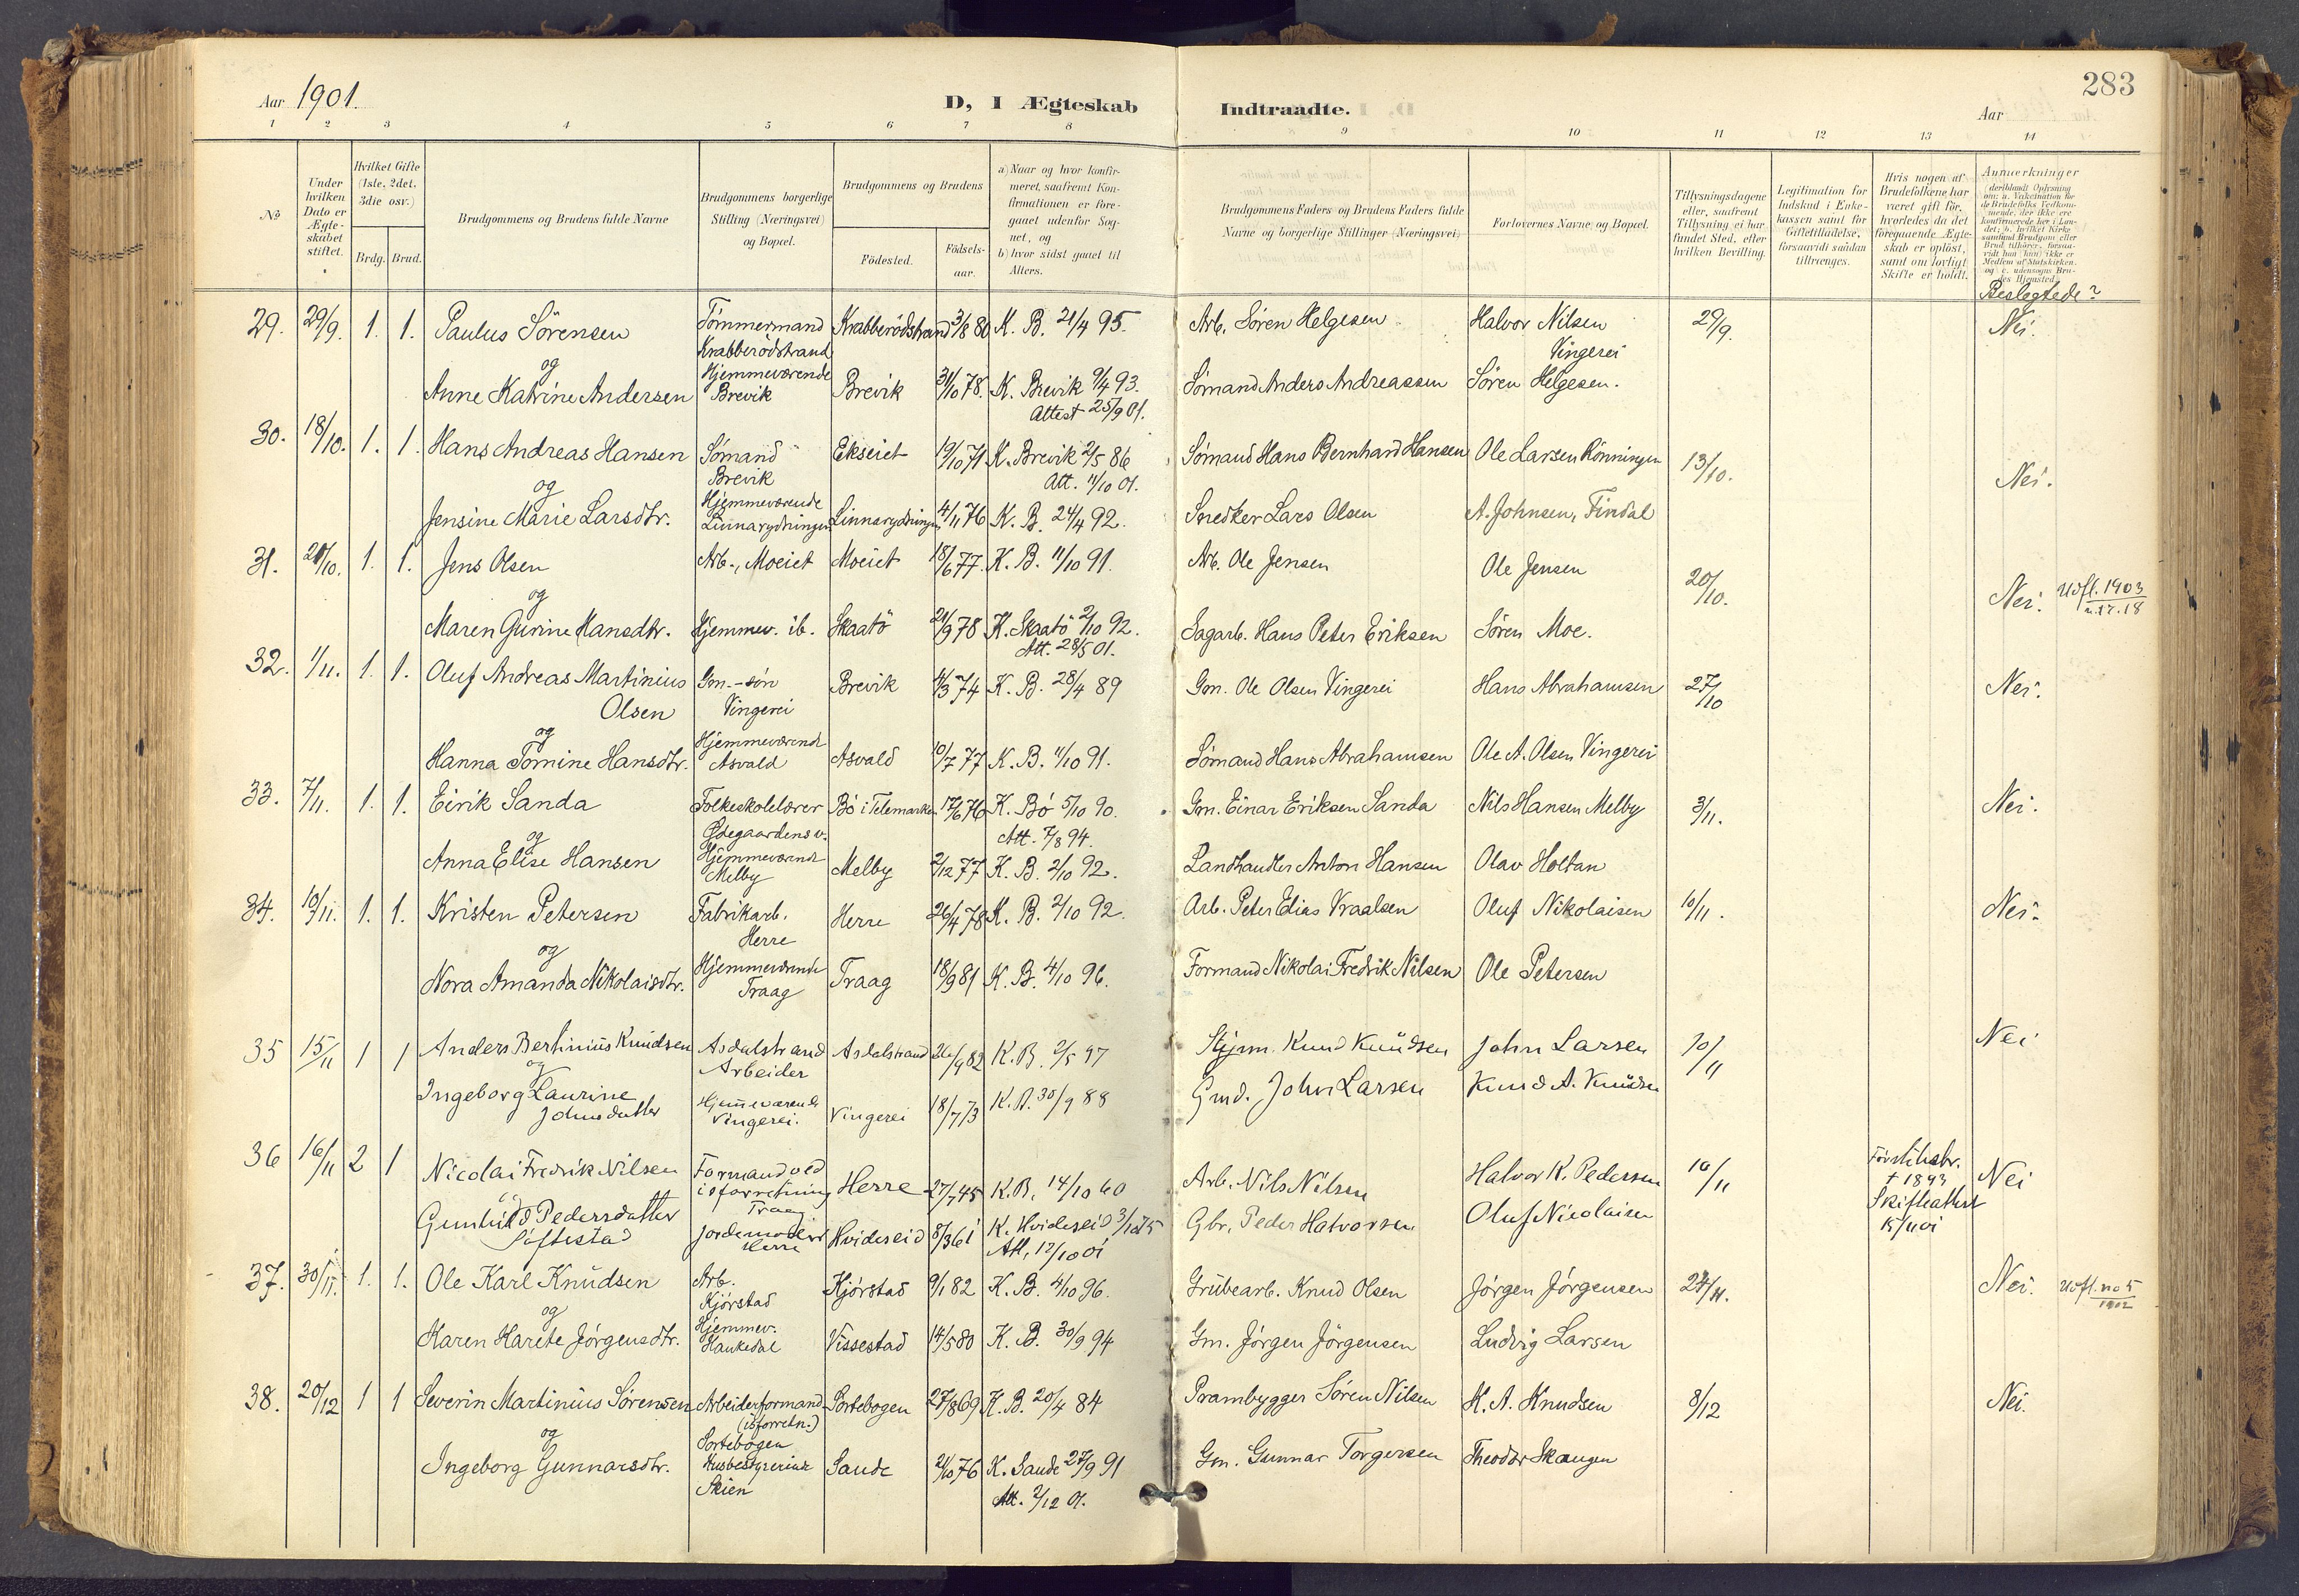 283
Aar 1901.
D, I Ægteskab Indtraadte.
Aar
1 2 3 4 5 6 7 8 9 10 11 12 13 14
No
Under hvilken Dato er Ægteskabet stiftet.
Hvilket Gifte (1ste, 2det, 3die osv.)
Brdg. Brud.
Brudgommens og Brudens fulde Navne
Brudgommens borgerlige Stilling (Næringsvei) og Bopæl.
Brudgommens og Brudens
Födested.
Födselsaar.
a) Naar og hvor konfirmeret, saafremt Konfirmationen er foregaaet udenfor Sognet, og
b) hvor sidst gaaet til Alters.
Brudgommens Faders og Brudens Faders fulde Navne og borgerlige Stillinger (Næringsvei)
Forlovernes Navne og Bopæl.
Tillysningsdagene eller, saafremt Tillysning ei har fundet Sted, efter hvilken Bevilling.
Legitimation for Indskud i Enkekassen samt for Giftetilladelse, forsaavidt saadan tiltrænges.
Hvis nogen af Brudefolkene har været gift før, hvorledes da det foregaaende Ægteskab er oplöst, samt om lovligt Skifte er holdt.
Anmærkninger
Beslegtede?
29. 29/9. 1. 1. Paulus Sörensen Tömmermand Krabberödstrand Krabberödstrand 3/8 80 K. B. 21/4 95. Arb. Sören Helgesen Halvor Nilsen Vingerei 29/9. Nei.
og
Anne Katrine Andersen Hjemmeværende Brevik Brevik 31/10 78. K. Brevik 9/4 93. Attest 25/9 01. Sömand Anders Andreassen Sören Helgesen.
30. 18/10. 1. 1. Hans Andreas Hansen Sömand Brevik Ekseiet 19/10 71 K. Brevik 2/5 86 Att. 11/10 01. Sömand Hans Bernhard Hansen Ole Larsen Rönningen 13/10. Nei.
og
Jensine Marie Larsdtr. Hjemmeværende Linnarydningen Linnarydningen 4/11 76 K. B. 24/4 92. Snedker Lars Olsen A. Johnsen, Findal
31. 20/10. 1. 1. Jens Olsen Arb., Moeiet Moeiet 18/6 77. K. B. 11/10 91. Arb. Ole Jensen Ole Jensen 20/10. Nei. Udfl. 1903 n. 17. 18
og
Maren Gurine Hansdtr. Hjemmev. ib. Skaatö 21/9 78 K. Skaatö 2/10 92. Att. 28/5 01. Sagarb. Hans Peter Eriksen Sören Moe.
32. 1/11. 1. 1. Oluf Andreas Martinius Olsen Gm.-sön Vingerei Brevik 4/3 74 K. B. 28/4 89 Gm. Ole Olsen Vingerei Hans Abrahamsen 27/10 Nei.
og
Hanna Tomine Hansdtr. Hjemmeværende Asvald Asvald 10/7 77 K. B. 11/10 91. Sömand Hans Abrahamsen Ole A. Olsen Vingerei
33. 7/11. 1. 1. Eirik Sanda Folkeskolelærer Ödegaardens v. Bö i Telemarken 17/6 76 K. Bö 5/10 90. Att. 7/8 94. Gm. Einar Eriksen Sanda Nils Hansen Melby 3/11. Nei.
og
Anna Elise Hansen Hjemmeværende Melby Melby 2/12 77 K. B. 2/10 92. Landhandler Anton Hansen Olav Holtan
34. 10/11. 1. 1. Kristen Petersen Fabrikarb. Herre Herre 26/4 78 K. B. 2/10 92. Arb. Peter Edias Vraalsen Oluf Nikolaisen 10/11. Nei.
og
Nora Amanda Nikolaisdtr. Hjemmeværende Traag Traag 18/9 81 K. B. 4/10 96. Formand Nikolai Fredrik Nilsen Ole Petersen
35 15/11 1 1 Anders Bertinius Knudsen Asdalstrand Arbeider Asdalstrand 26/9 82 K. B. 2/5 97 Stÿrm. Knud Knudsen John Larsen 10/11 Nei
og
Ingeborg Laurine Johnsdatter Hjemmeværende Vingerei. Vingerei 18/7 73 K. B. 30/9 88 Gmd. John Larsen Knud A. Knudsen
36 16/11 2 1 Nicolai Fredrik Nilsen Formand ved isforretning Traag Herre 27/7 45 K. B. 14/10 60 Arb. Nils Nilsen Halvor K. Pedersen 10/11 † 1893 Skifteattest 15/11 01 Nei
og
Gunhild Pedersdatter Siftestad Jordemoder Herre Hvideseid 8/3 61 K. Hvideseid 3/10 75 Att. 12/10 01 Gbr. Peder Halvorsen Oluf Nicolaisen
37. 30/11. 1. 1. Ole Karl Knudsen Arb. Kjörstad Kjörstad 9/1 82 K. B. 4/10 96. Grubearb. Knud Olsen Jörgen Jörgensen 24/11. Nei. Udfl. no 5 1902
og
Karen Marete Jörgensdtr. Hjemmev. Haukedal Vissestad 14/5 80 K. B. 30/9 94 Gm. Jörgen Jörgensen Ludvig Larsen
38. 20/12 1 1 Severin Martinius Sörensen Arbeiderformand (isforretn.) Sortebogen Sortebogen 27/8 69 K. B. 20/4 84 Prambygger Sören Nilsen K. A. Knudsen 8/12 Nei.
og
Ingeborg Gunnarsdtr. Husbestyrerinde Skien Saude 21/10 76 K. Saude 27/9 91 Att. 2/12 01. Gm. Gunnar Torgersen Theodor Skaugen